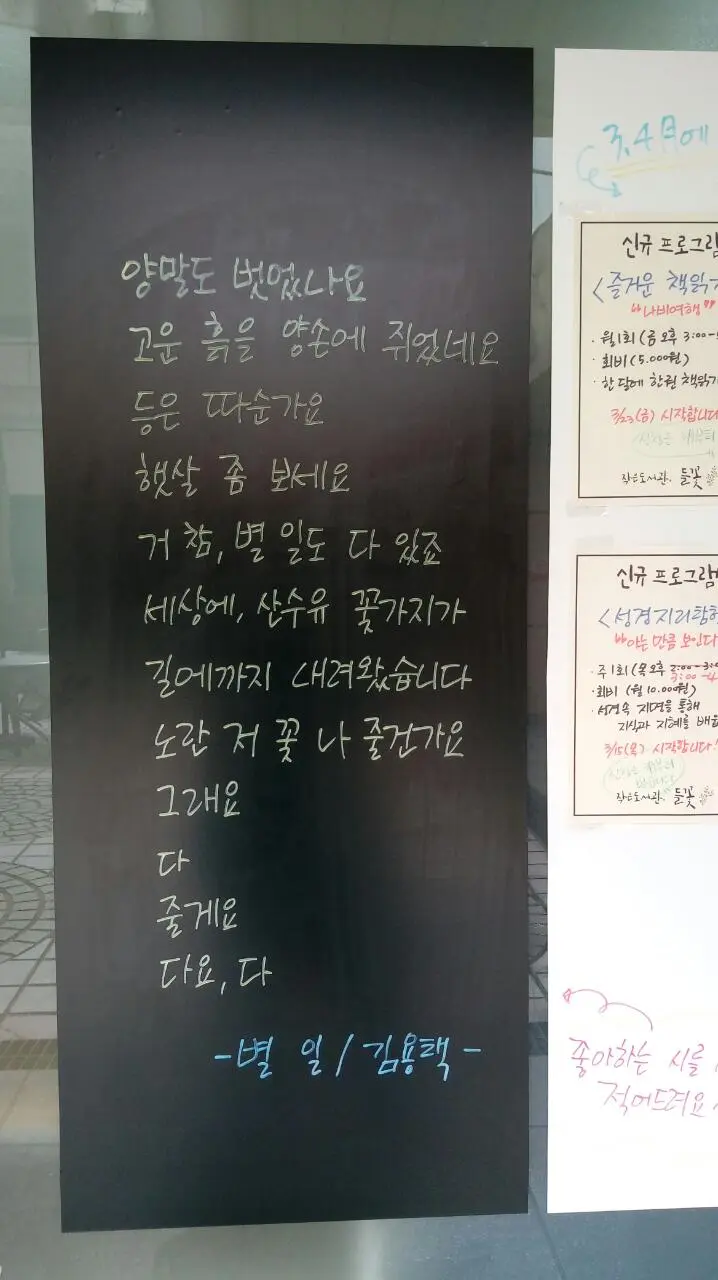 양말도 벗었나요
고운 흙을 양손에 쥐었네요
등은 따순가요
햇살 좀 보세요
거 참, 별 일도 다 있죠
세상에, 산수유 꽃가지가
길에까지 내려왔습니다
노란 저 꽃 나 줄건가요
그래요
다
줄게요
다요, 다
-별 일 / 김용택-
3, 4월에
신규 프로그램
<즐거운 책읽기
"나비여행"
· 월1회 (금 오후 3:00-
· 회비 (5.000원)
· 한 달에 한권 책읽기
3/23(금) 시작합니다
작은도서관. 들꽃
신규 프로그램
<성경지리탐험
"아는 만큼 보인다
· 주1회 (목 오후 2:00-3:0
3:00-4
· 회비 (월 10.000원)
· 성경속 지명을 통해
지식과 지혜를 배움
3/15(목) 시작합니다!
작은도서관. 들꽃
좋아하는 시를
적어드려요